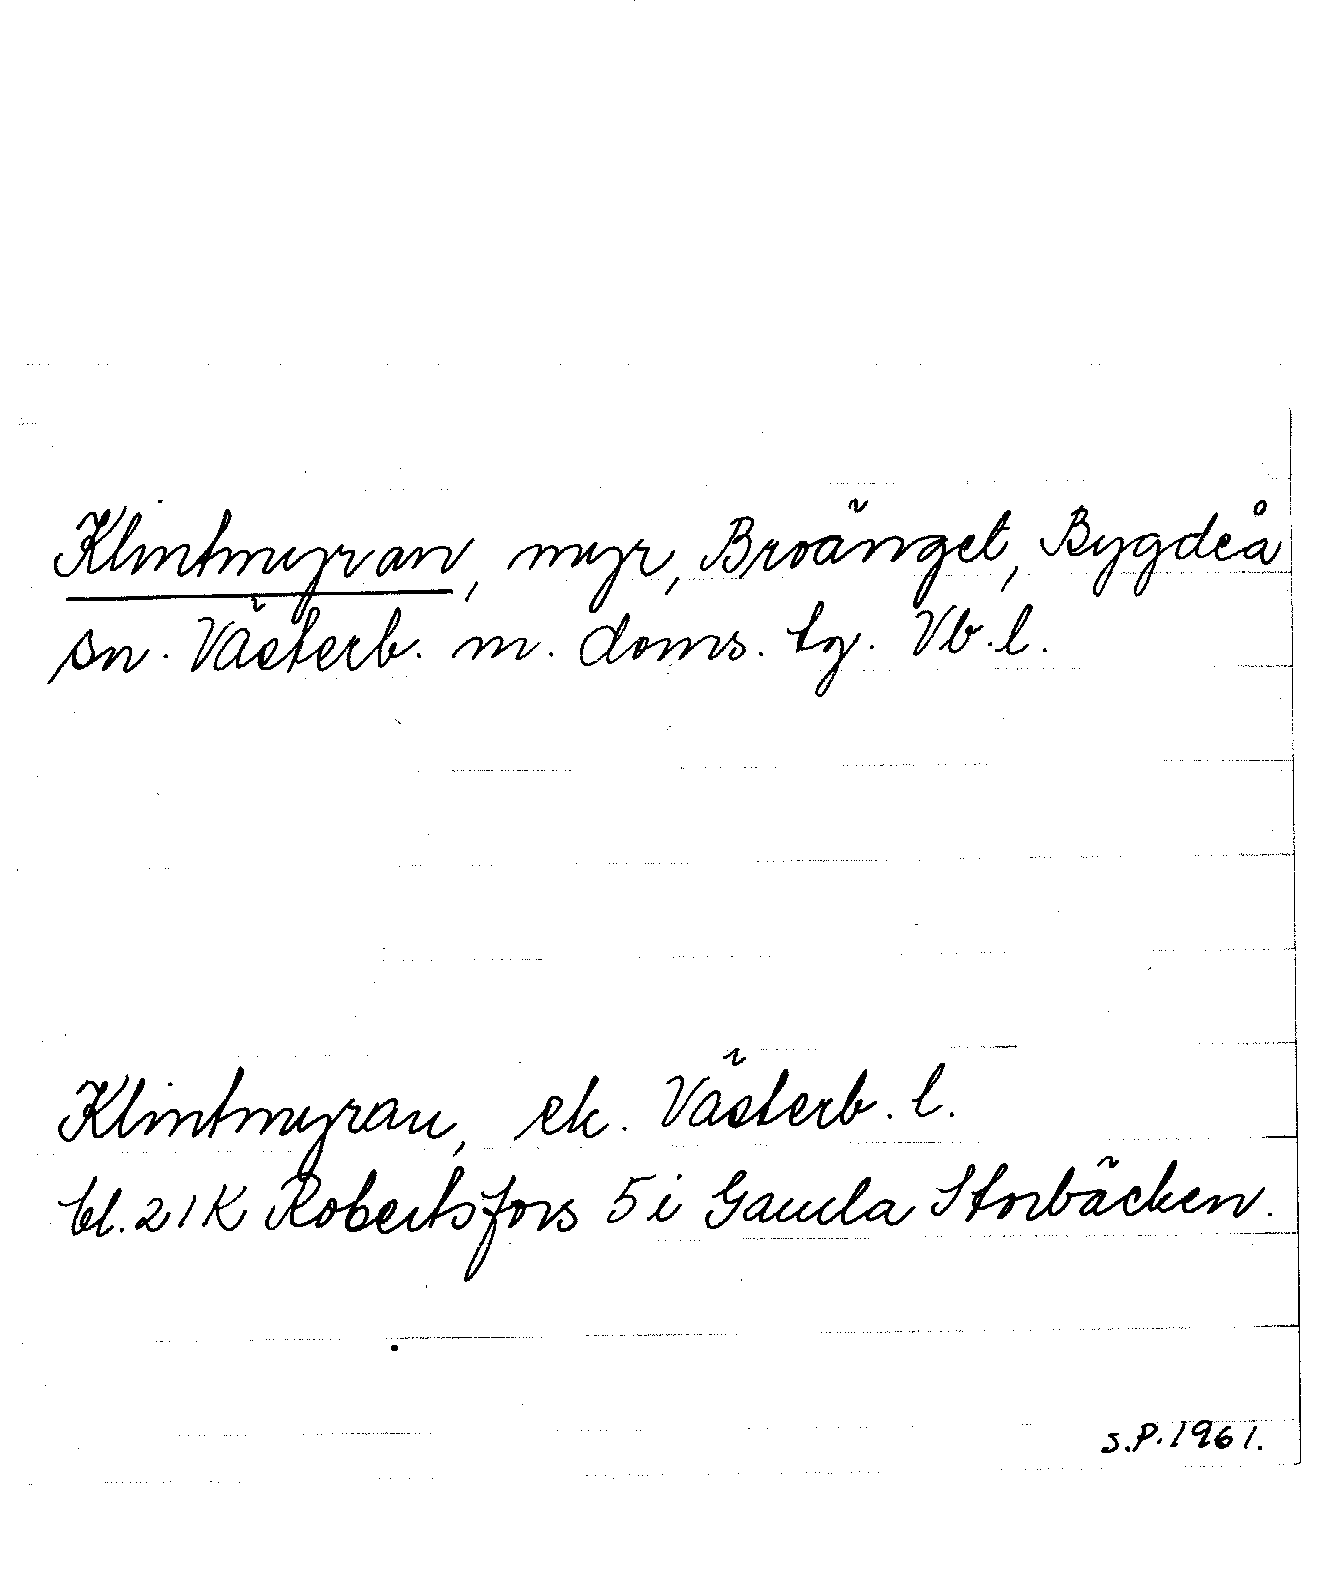 Klintmyran, myr, Broänget, Bygdeå
sn. Västerb. m. doms. tg. Vb. l.
Klintmyran, ek. Västerb. l.
bl. 21K Robertsfors 5 i Gamla Storbäcken.
S.P. 1961.